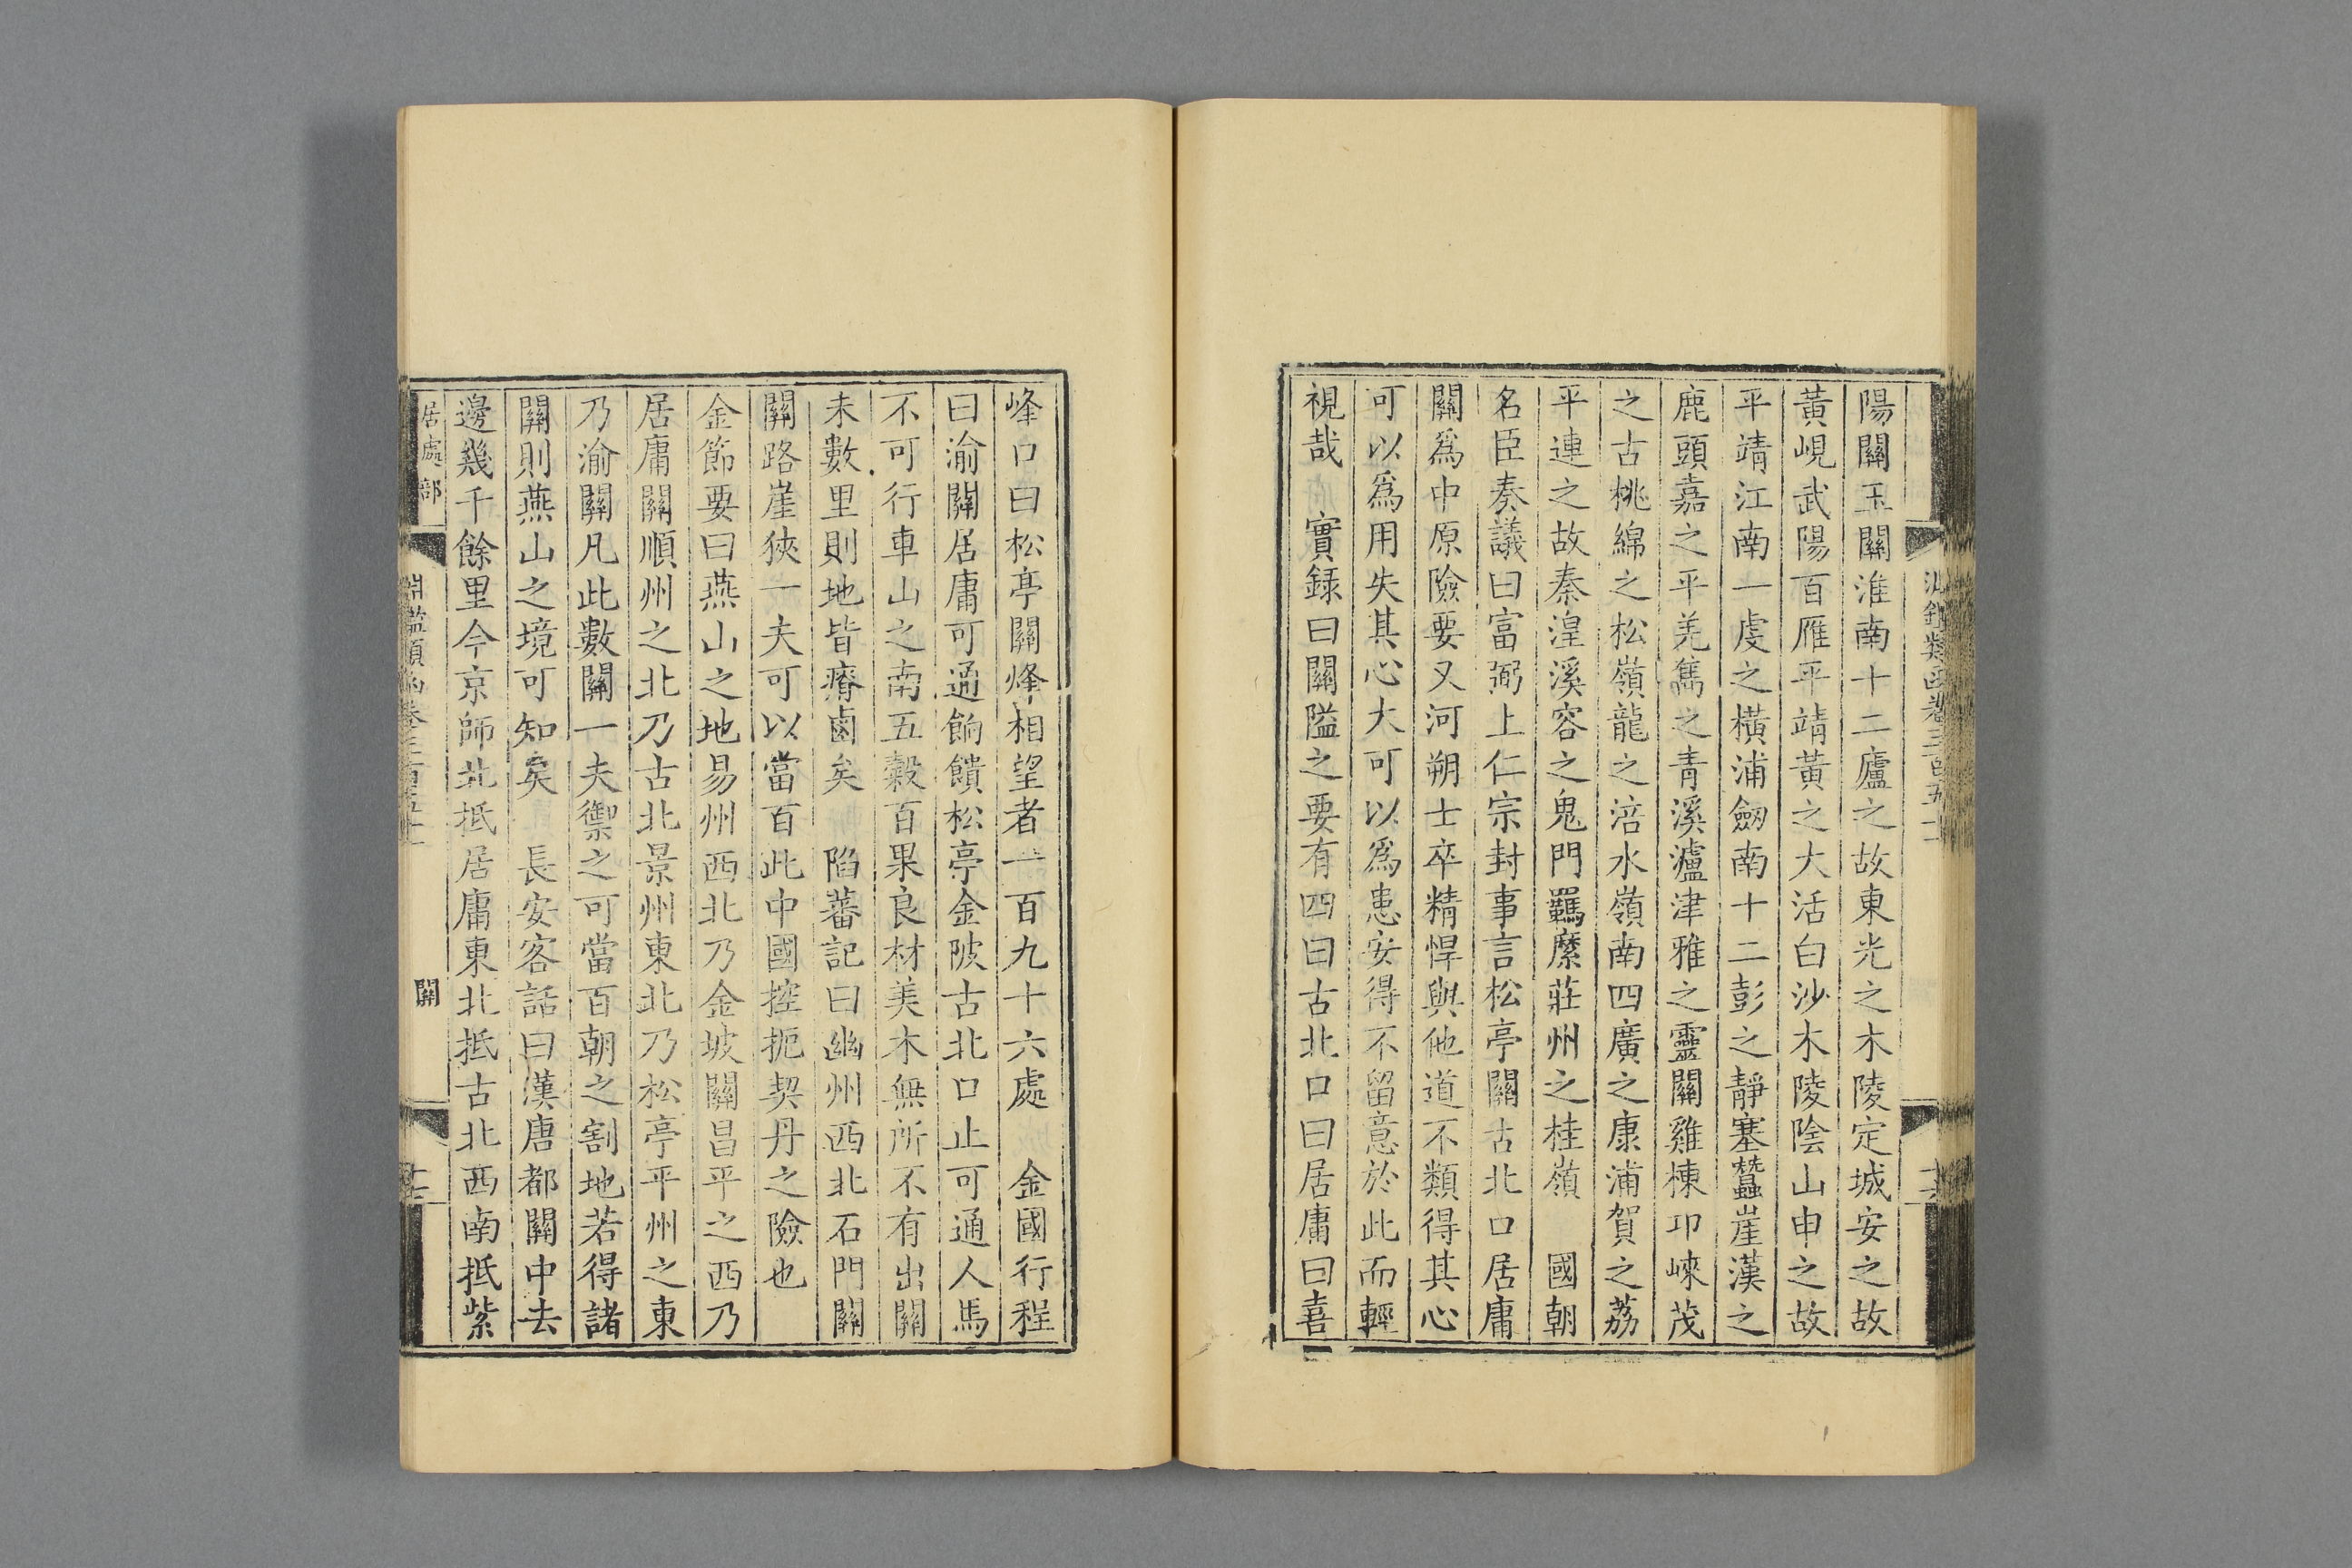 陽關玉關淮南十二廬之故東光之木陵定城安之故
黃峴武陽百雁平靖黃之大活白沙木陵陰山申之故
平靖江南一虔之橫浦劒南十二彭之靜塞蠶崖漢之
鹿頭嘉之平羌雟之青溪瀘津雅之靈關雞棟邛崍茂
之古桃綿之松嶺龍之涪水嶺南四廣之康浦賀之荔
平連之故秦湟溪容之鬼門羈縻莊州之桂嶺　國朝
名臣奏議曰富弼上仁宗封事言松亭關古北口居庸
關為中原險要又河朔士卒精悍與他道不類得其心
可以為用失其心大可以為患安得不留意於此而輕
視哉　實録曰關隘之要有四曰古北口曰居庸曰喜
峰口曰松亭關烽相望者一百九十六處　金國行程
曰渝關居庸可通餉饋松亭金陂古北口止可通人馬
不可行車山之南五穀百果良材美木無所不有出關
未數里則地皆瘠鹵矣　陷蕃記曰幽州西北石門關
關路崖狹一夫可以當百此中國控扼契丹之險也
金節要曰燕山之地易州西北乃金坡關昌平之西乃
居庸關順州之北乃古北景州東北乃松亭平州之東
乃渝關凡此數關一夫禦之可當百朝之割地若得諸
關則燕山之境可知矣　長安客話曰漢唐都關中去
邊幾千餘里今京師北抵居庸東北抵古北西南抵紫
居處部
淵鑑類函卷三百五十
關